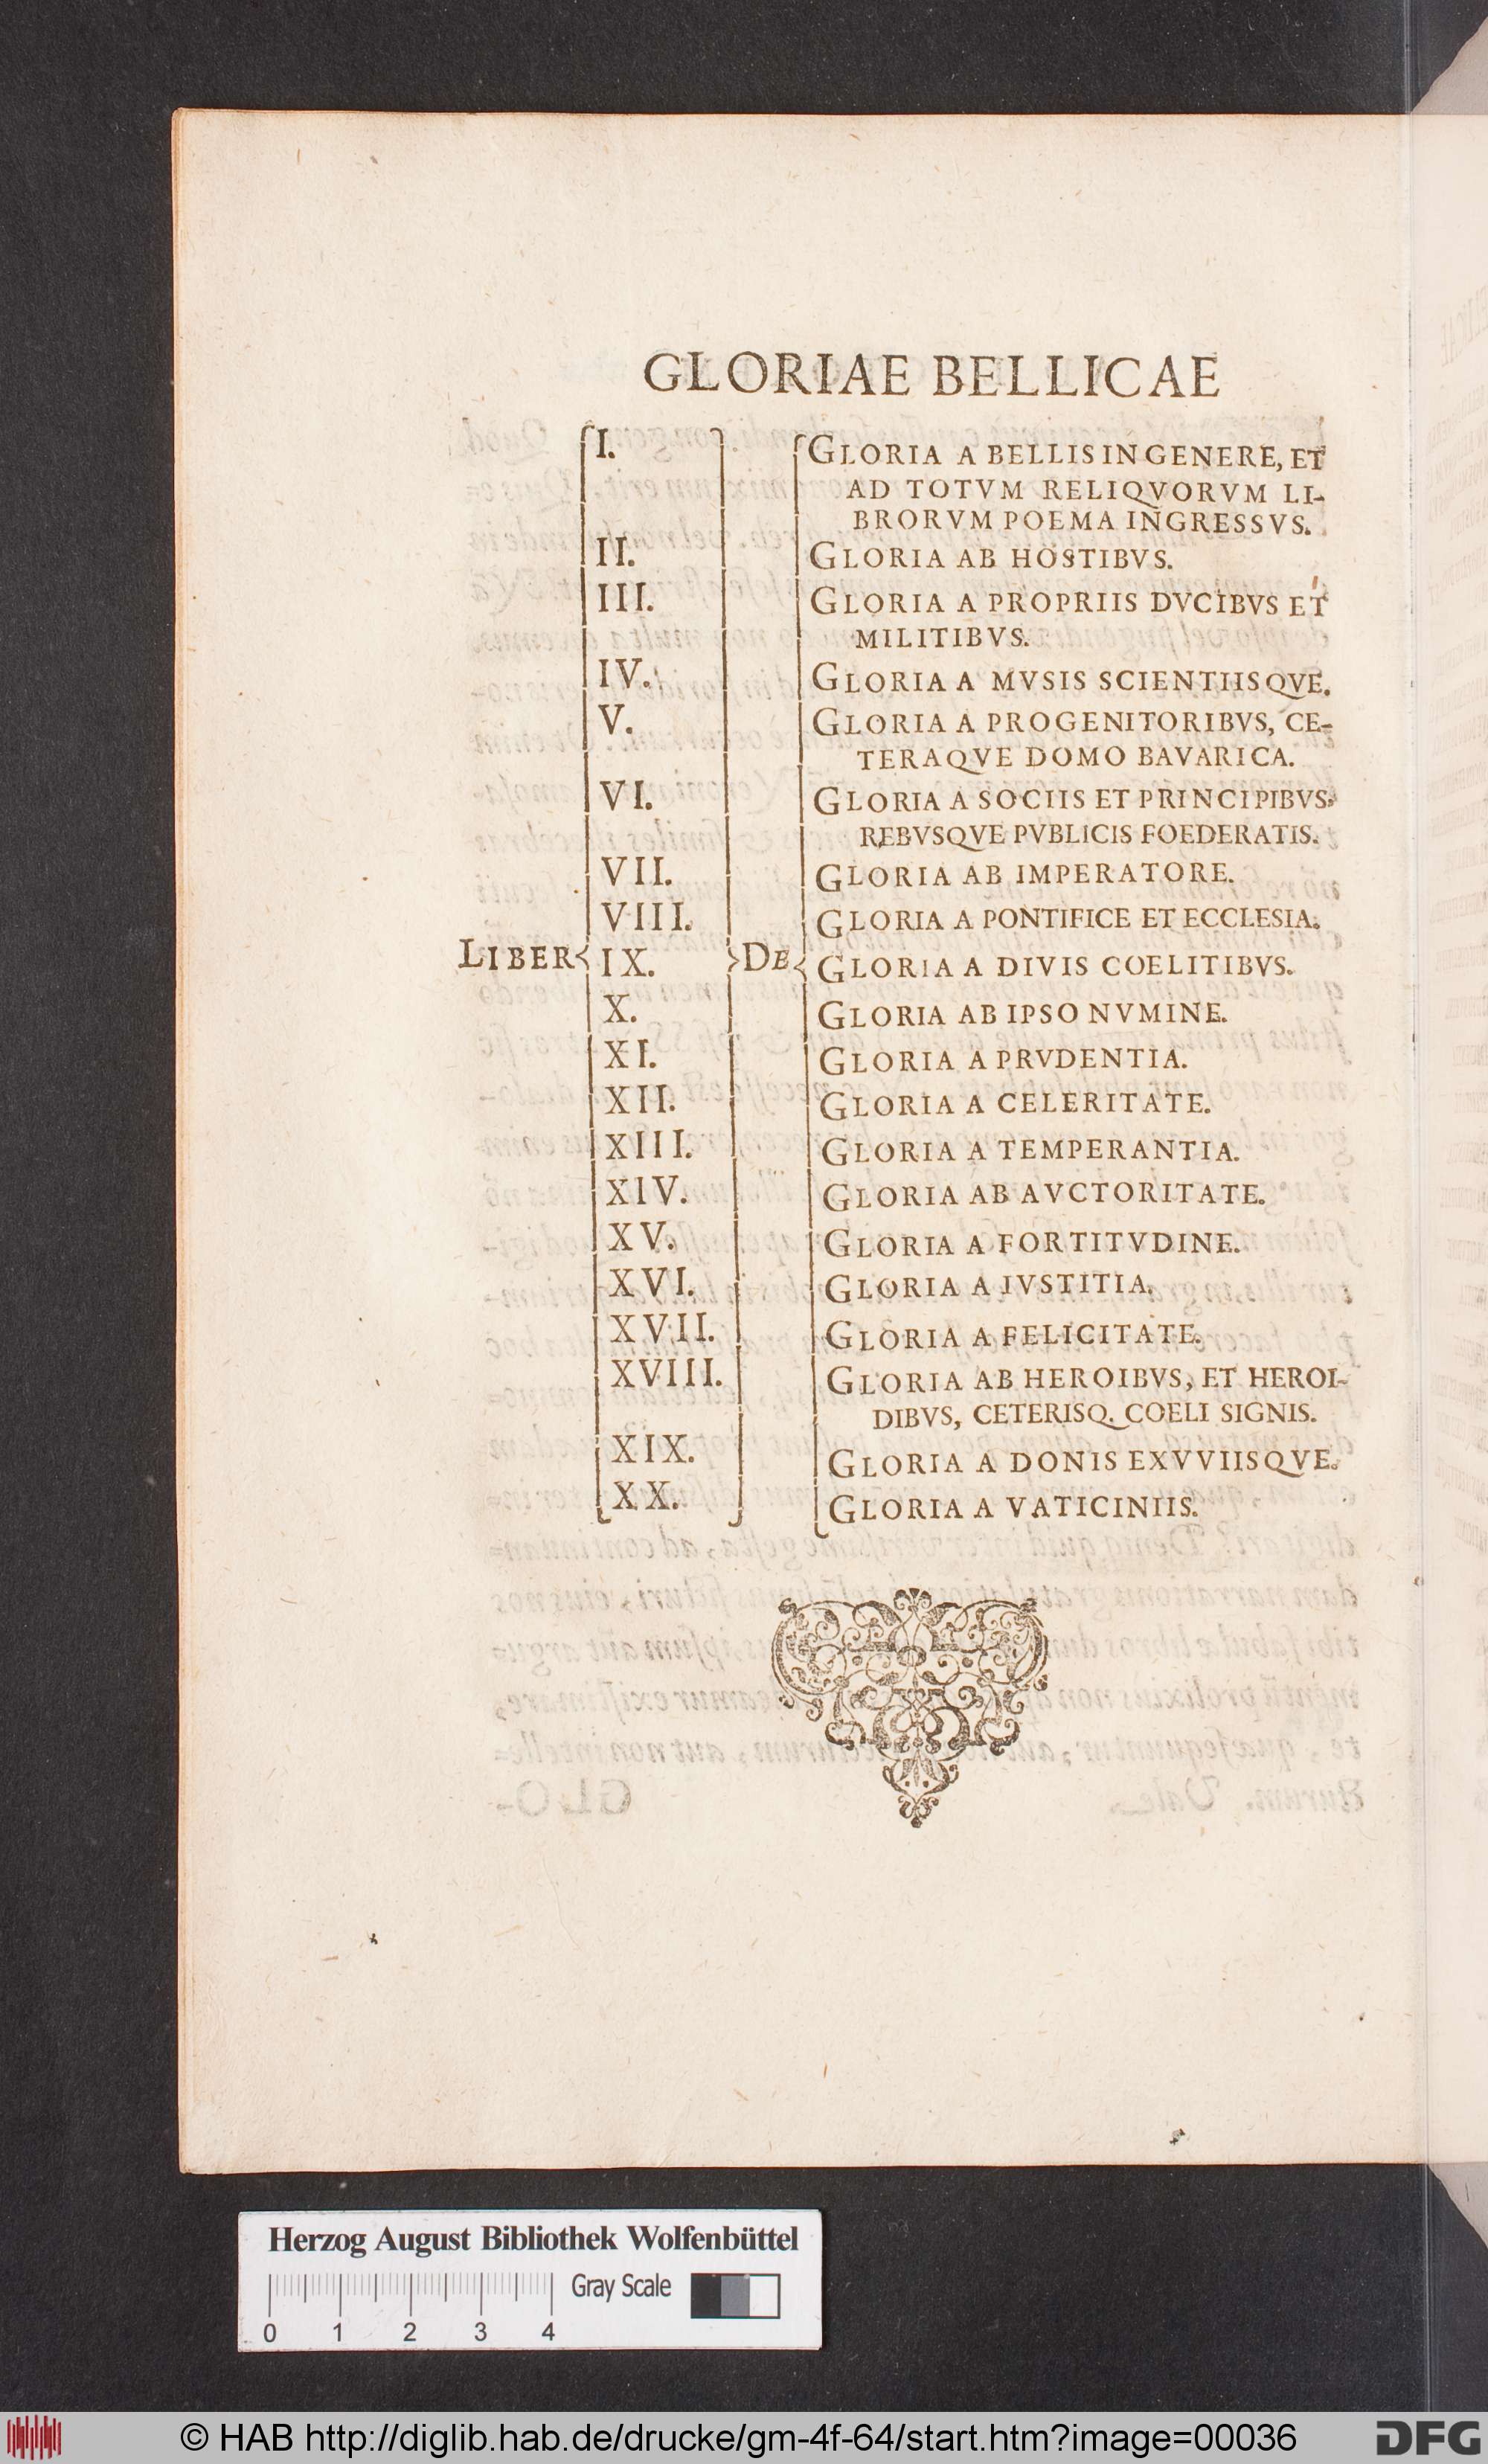 GLORIAE BELLICAE
I. GLORIA A BELLIS IN GENERE, ET
AD TOTVM RELIQVORVM LI-
BRORVM POEMA INGRESSVS.
II. GLORIA AB HOSTIBVS.
III. GLORIA A PROPRIIS DVCIBVS ET
MILITIBVS.
IV. GLORIA A MVSIS SCIENTIISQVE.
V. GLORIA A PROGENITORIBVS, CE-
TERAQVE DOMO BAVARICA.
VI. GLORIA A SOCIIS ET PRINCIPIBVS,
REBVSQVE PVBLICIS FOEDERATIS.
VII. GLORIA AB IMPERATORE.
VIII. GLORIA A PONTIFICE ET ECCLESIA.
LIBER IX. DE GLORIA A DIVIS COELITIBVS.
X. GLORIA AB IPSO NVMINE.
XI. GLORIA A PRVDENTIA.
XII. GLORIA A CELERITATE.
XIII. GLORIA A TEMPERANTIA.
XIV. GLORIA AB AVCTORITATE.
XV. GLORIA A FORTITVDINE.
XVI. GLORIA A IVSTITIA.
XVII. GLORIA A FELICITATE.
XVIII. GLORIA AB HEROIBVS, ET HEROI-
DIBVS, CETERISQ. COELI SIGNIS.
XIX. GLORIA A DONIS EXVVIISQVE.
XX. GLORIA A VATICINIIS.
Herzog August Bibliothek Wolfenbüttel
Gray Scale
0 1 2 3 4
© HAB http://diglib.hab.de/drucke/gm-4f-64/start.htm?image=00036
DFG